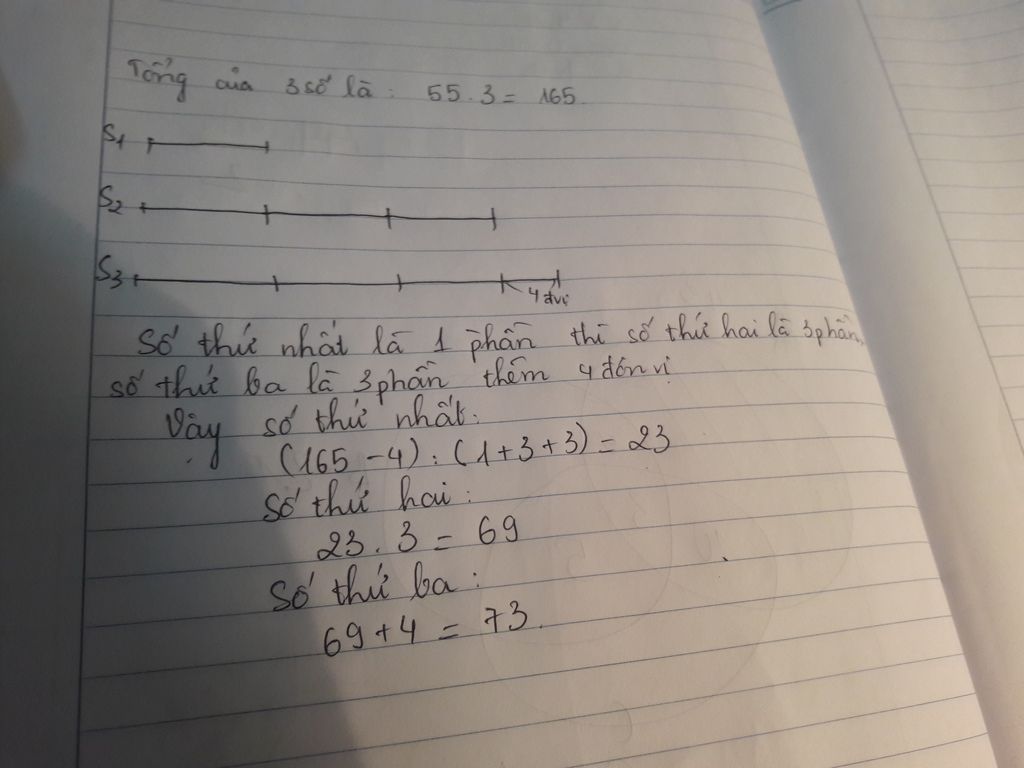 Tổng của 3 số là: 55.3 = 165.
S1
S2
S3
4 đvị
Số thứ nhất là 1 phần thì số thứ hai là 3 phần,
số thứ ba là 3 phần thêm 4 đơn vị
Vậy số thứ nhất:
(165 - 4) : (1+3+3) = 23
Số thứ hai:
23.3 = 69
Số thứ ba:
69+4 = 73.